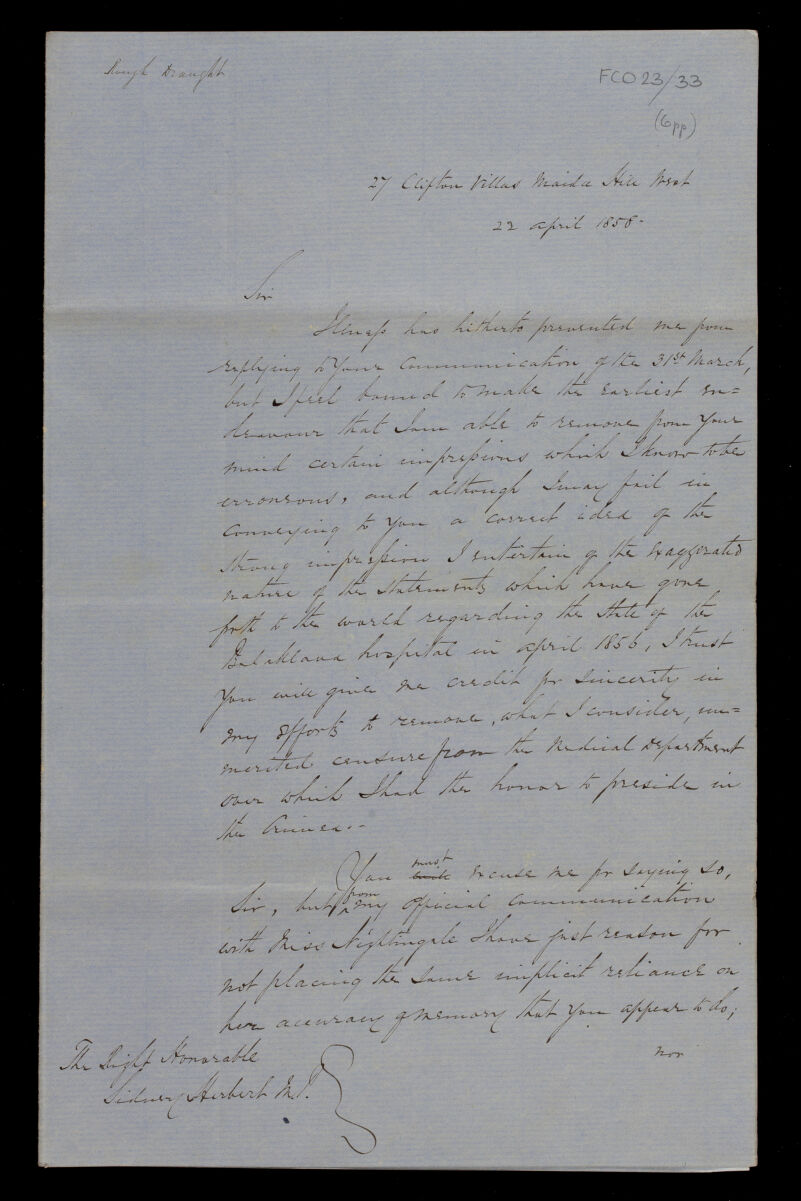 Rough Draught
FCO23/33
(6pp)
27 Clifton Villas Maida Hill West
22 april 1858-
Sir
Illness has hitherto prevented me from
replying to Your Communication of the 31st March,
but I feel bound to make the earliest en=
deavour that I am able to remove from Your
mind certain impressions which I know to be
erroneous, and although I may fail in
conveying to You a correct idea of the
strong impression I entertain of the exaggerated
nature of the statements which have gone
forth to the world regarding the State of the
Balaklava hospital in april 1856, I trust
You will give me credit for sincerity in
my efforts to remove, what I consider, un=
merited censure from the Medical Department
over which I had the honor to preside in
the Crimea.-
You must excuse me for saying so,
Sir, but from my Official Communication
with Miss Nightingale I have just reason for
not placing the same implicit reliance on
her accuracy of memory that You appear to do;
nor
The Right Honorable
Sidney Herbert M.P.